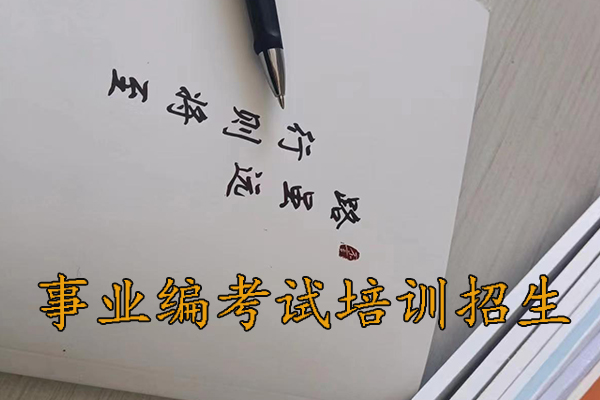 路虽远
行则将至
事业编考试培训招生